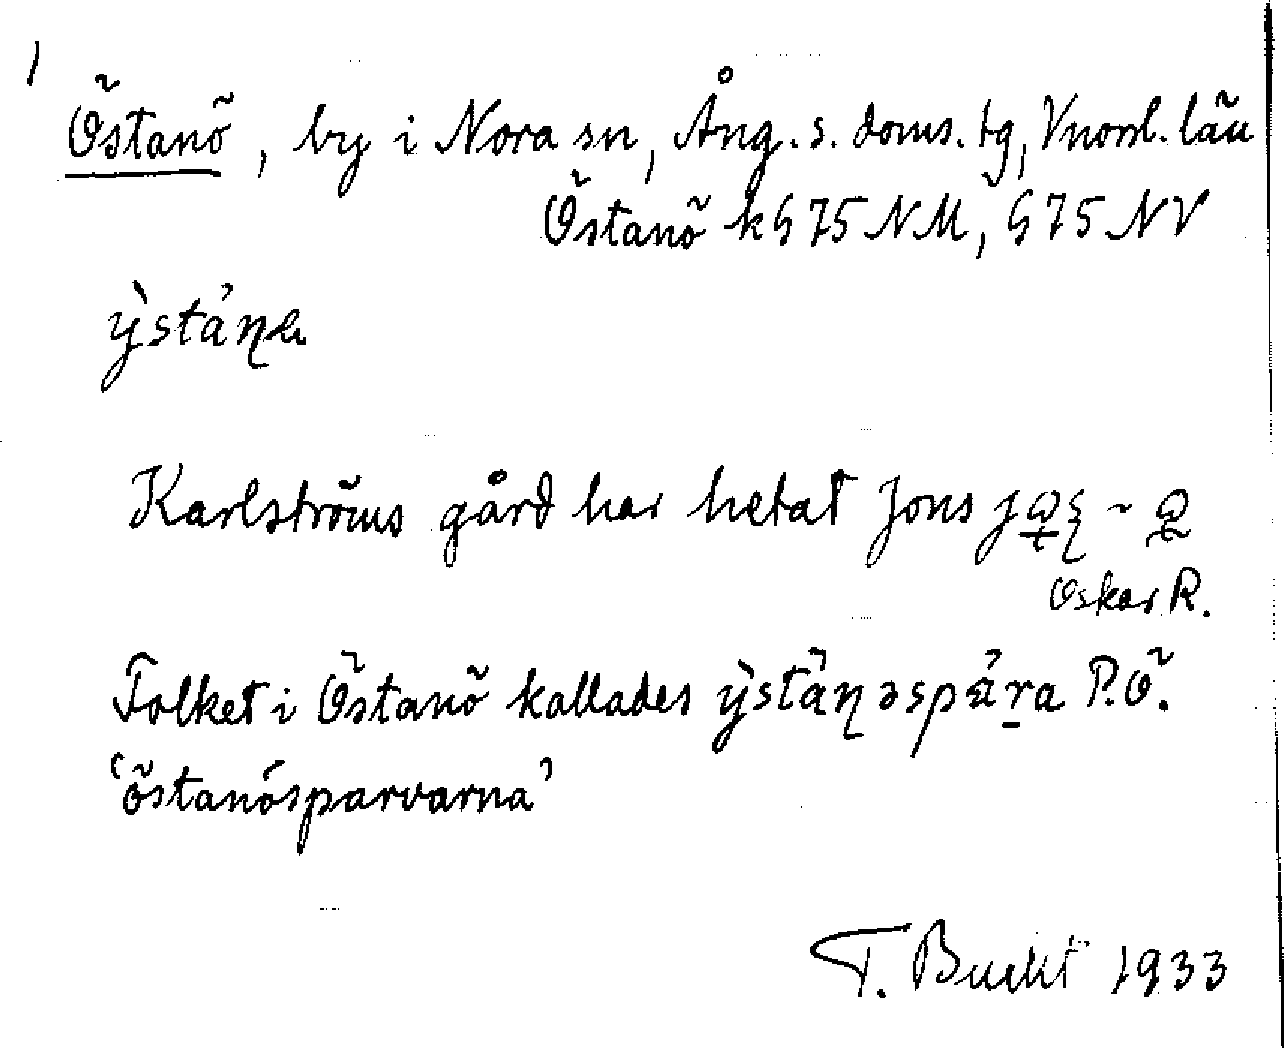 1
Östanö, by i Nora sn, Ång. s. doms. tg, Vnorrl. län
Östanö k G 75 NM, G 75 NV
ỳstáŋə
Karlströms gård har hetat Jons
Oskar R.
Folket i Östanö kallades ỳstáŋəspára P.Ö.
‘östanösparvarna’
T. Bucht 1933